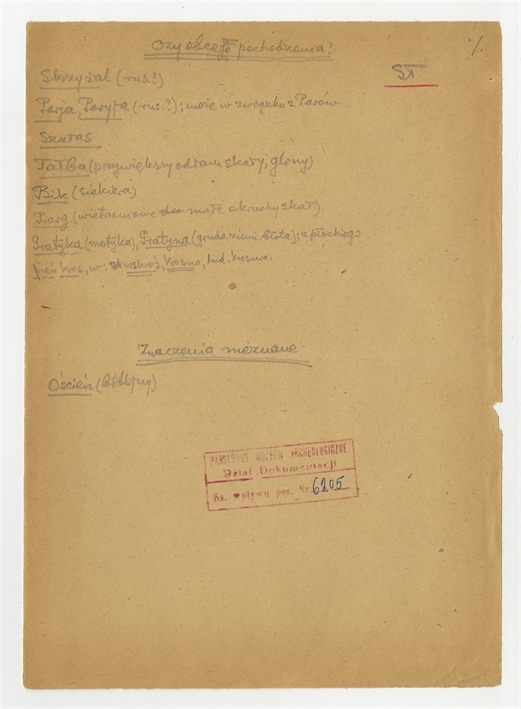 Czy obcego pochodzenia?
1/.
SI
Skrzyżal (-rus.?)
Parja, Parypa (-rus.?); może w związku z Parów
Szaras
Tałba (przywiększy odłam skały, gliny)
Bik (siekiera)
Piarg (wietrzeniowe małe okruchy skał)
Gratyka (motyka), Gratyna (gruda ziemi, błota); z płockiego
pień kros, w: Krosno, lud. Krosna.
Znaczenia nieznane
Oścień (biblijny)
PAŃSTWOWE MUZEUM ARCHEOLOGICZNE
Dział Dokumentacji
Ks. wpływu poz. Nr. 6205